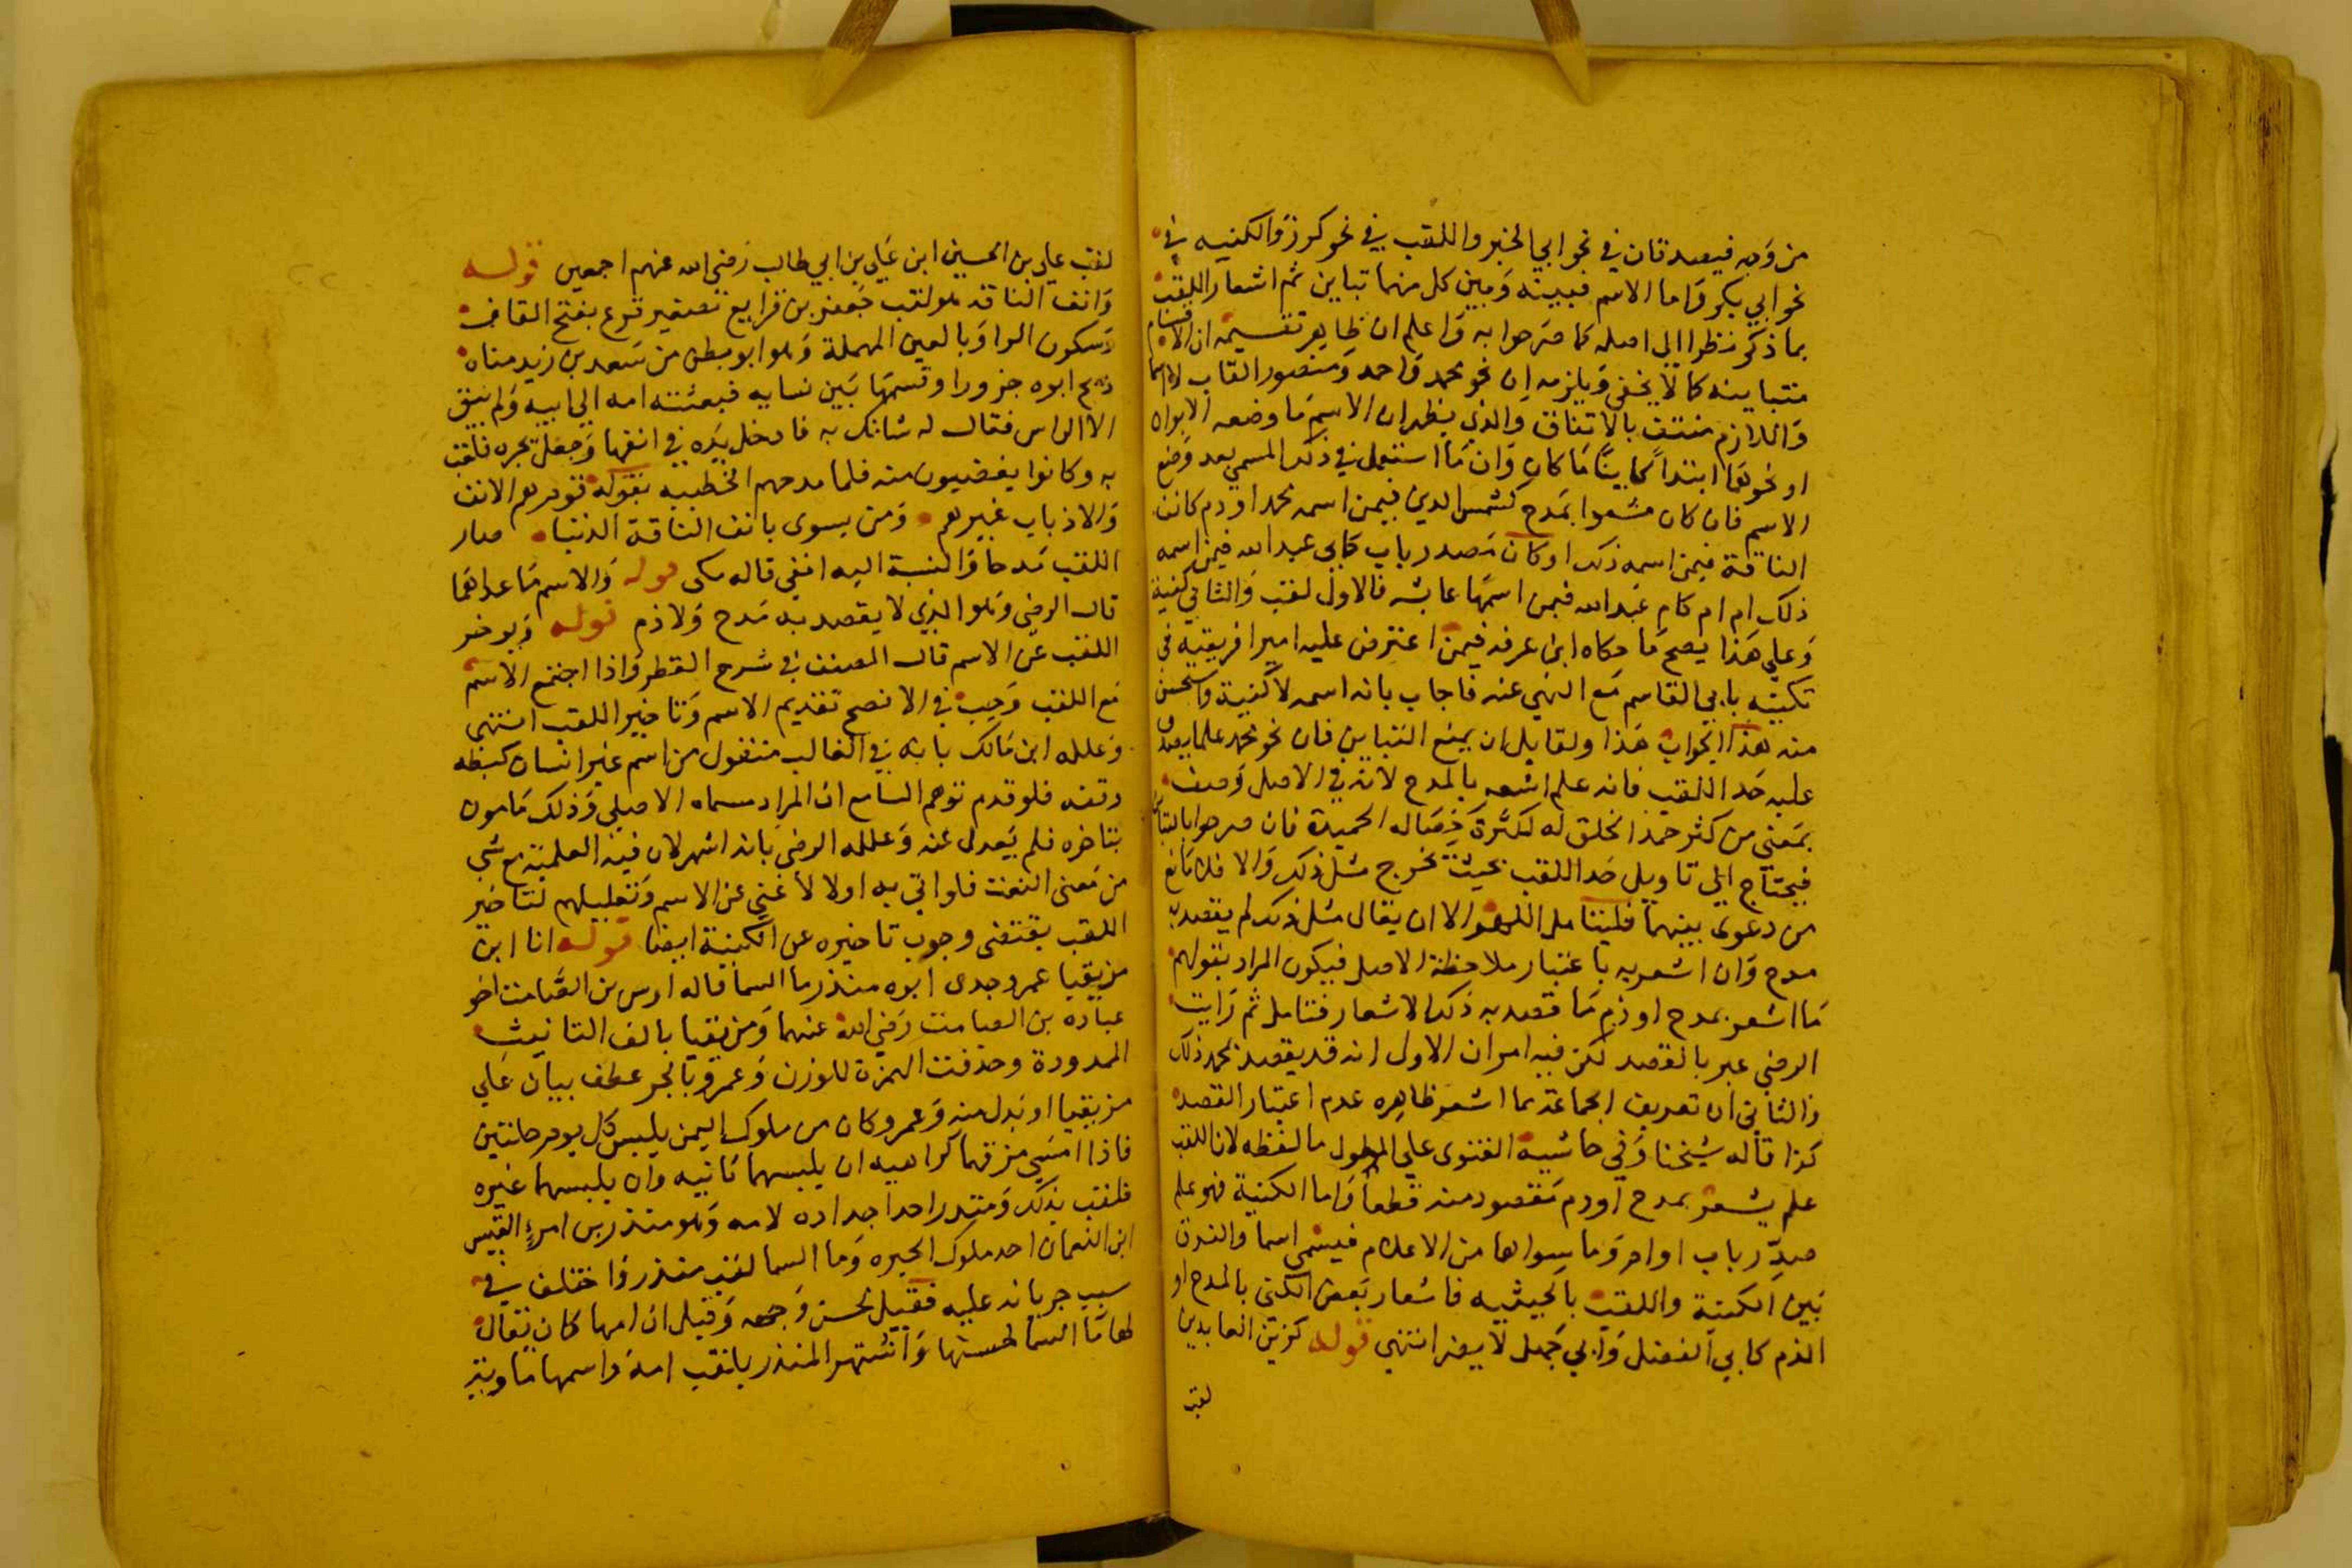 من وجه فيصدقان في نحو ابي الخير واللقب في نحو كرز والكنيه في
نحو ابي بكر واما الاسم فبينه وبين كل منهما تباين ثم اشعار اللقب
بما ذكر نظرا الي اصله كما صرحوا به واعلم ان ظاهر تقسيمه ان الاقسام
متباينه كما لا يخفي ويلزمه ان نحو محمد واحمد ومنصور القاب لا اسما
واللازم منتف بالاتفاق والذي يظهر ان الاسم ما وضعه الابوان
او نحوهما ابتداً كاينًا ما كان وان ما استعمل في ذلك المسمي بعد وضع
الاسم فان كان مشعرا بمدح كشمس الدين فيمن اسمه محمد او ذم كانف
الناقة فيمن اسمه ذلك او كان مصدر باب كابي عبد الله فيمن اسمه
ذلك ام ام كام عبد الله فيمن اسمها عايشه فالاول لقب والثاني كنية
وعلي هذا يصح ما حكاه ابن عرفه فيمن اعترض عليه امير افريقيه في
تكنيه بابي القاسم مع النهي عنه فاجاب بانه اسمه لا كنية واستحسن
منه هذا الجواب هذا ولقايل ان يمنع التباين فان نحو محمد علما يصدق
عليه حد اللقب فانه علم اشعر بالمدح لانه في الاصل وصف
بمعني من كثر حمد الخلق له لكثرة خصاله الحميدة فان صرحوا بالتباين
فيحتاج الي تاويل حد اللقب بحيث يخرج مثل ذلك والا فلا مانع
من دعوي بينهما فليتامل اللهم الا ان يقال مثل ذلك لم يقصد به
مدح وان اشعر به باعتبار ملاحظة الاصل فيكون المراد بقولهم
ما اشعر بمدح او ذم ما قصد به ذلك الاشعار فتامل ثم رايت
الرضي عبر بالقصد لكن فيه امران الاول انه قد يقصد بمحمد ذلك
والثاني ان تعريف الجماعة بما اشعر ظاهره عدم اعتبار القصد
كذا قاله شيخنا وفي حاشية الفنري علي المطول ما لفظه لان اللقب
علم يشعر بمدح او ذم مقصود منه قطعاً واما الكنية فهو علم
صدّر باب او ام وما سواها من الاعلام فيسمي اسما والفرق
بين الكنية واللقب بالحيثيه فاشعار بعض الكني بالمدح او
الذم كابي الفضل وابي جهل لا يضر انتهي قوله كزين العابدين
لقب
لقب علي بن الحسين ابن علي بن ابي طالب رضي الله عنهم اجمعين قوله
وانف الناقه هو لقب جعفر بن قرايع تصغير قوع بفتح القاف
وسكون الواو بالعين المهملة وهو ابو بطن من سعد بن زيد مناه
ذبح ابوه جزورا وقسمها بين نسايه فبعثته امه الي ابيه ولم يبق
الا الراس فقال له شانك به فادخل يده في انفها وجعل يجره فلقب
به وكانوا يغضبون منه فلما مدحهم الخطييه بقوله قوم هم الانف
والاذناب غيرهم ومن يسوي بانف الناقة الذنبا صار
اللقب مدحا والنسبة اليه انفي قاله مكي قوله والاسم ما عداهما
قال الرضي وهو الذي لا يقصد به مدح ولا ذم قوله ويوخر
اللقب عن الاسم قال المصنف في شرح القطر واذا اجتمع الاسم
مع اللقب وجب في الافصح تقديم الاسم وتاخير اللقب انتهي
وعلله ابن مالك بانه في الغالب منقول من اسم غير انسان كبطه
وقفه فلو قدم توهم السامع ان المراد مسماه الاصلي وذلك مامون
بتاخره فلم يعدل عنه وعلله الرضي بانه اشهر لان فيه العلمية مع شي
من معني النعت فلو اتي به اولا لاغني عن الاسم وتعليلهم لتاخير
اللقب يقتضي وجوب تاخيره عن الكنية ايضا قوله انا ابن
مزيقيا عمرو جدي ابوه منذر ما السما قاله اوس بن الصامت اخو
عباده بن الصامت رضي الله عنهما ومزيقيا بالف التانيث
الممدودة وحذفت الهمزة للوزن وعمرو بالجر عطف بيان علي
مزيقيا او بدل منه وعمرو كان من ملوك اليمن يلبس كل يوم حلتين
فاذا امسي مزقهما كراهيه ان يلبسهما ثانيه وان يلبسهما غيره
فلقب بذلك ومنذر احد اجداده لامه وهو منذر بن امرء القيس
ابن النعمان احد ملوك الحيره وما السما لقب منذر واختلف في
سبب جريانه عليه فقيل لحسن وجهه وقيل ان امها كان يقال
لها ما السما لحسنها واشتهر المنذر بلقب امه واسمها ماويه